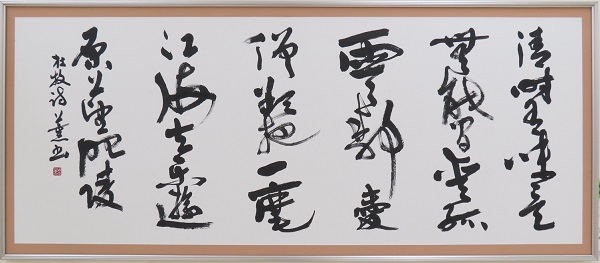 清時有味是
無能閑愛孤
雲静愛
僧欲把一麾
江海去樂遊
原上望昭陵
杜牧詩 薫